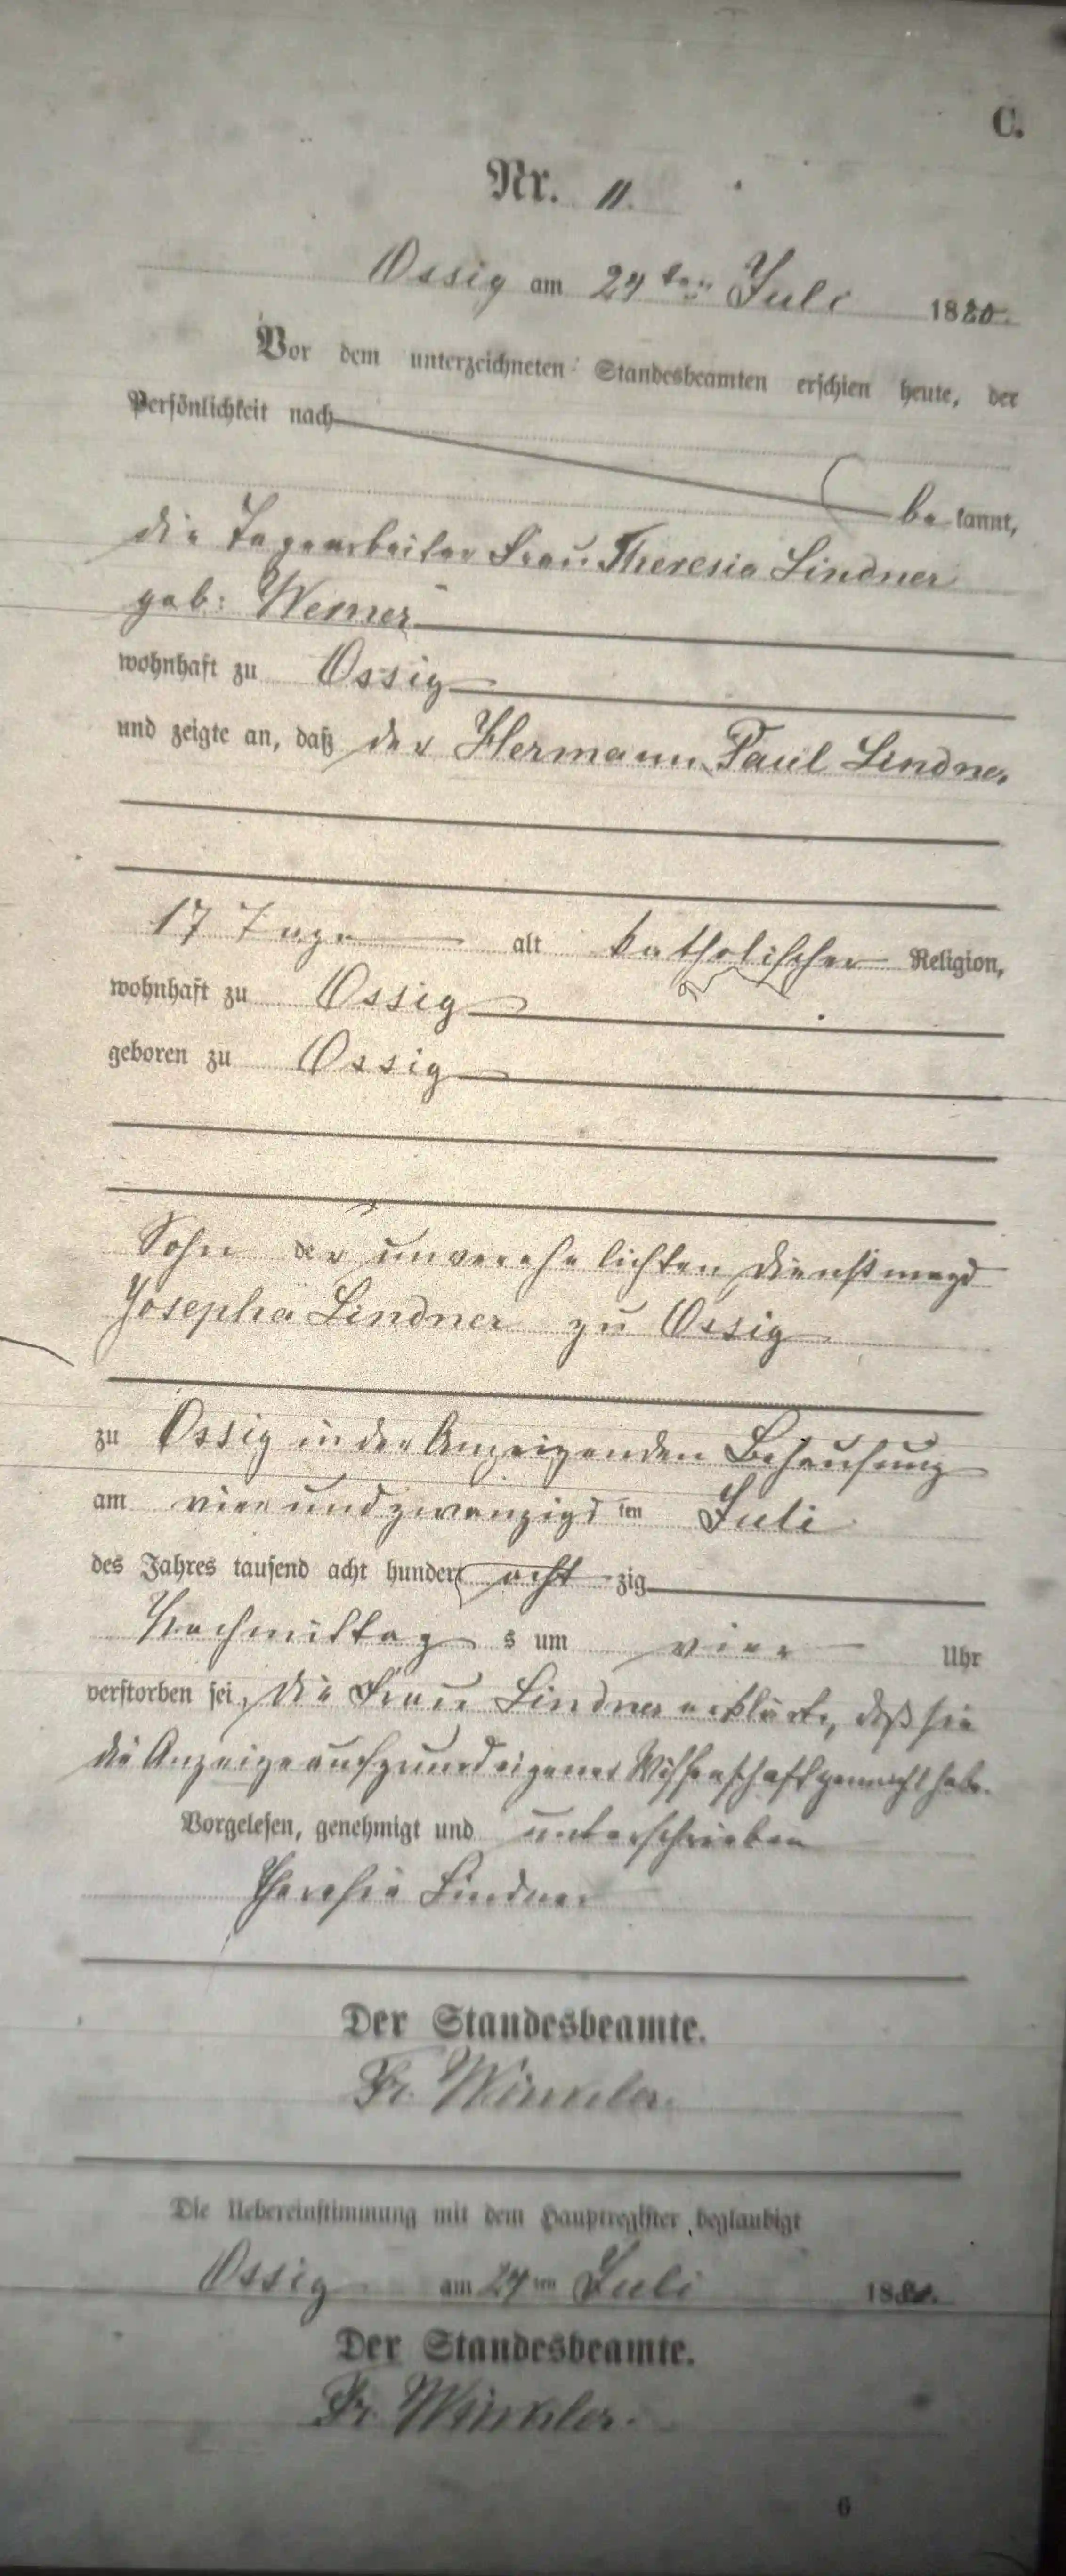 C.
Nr. 11.
Ossig am 24ten Juli 1880.
Vor dem unterzeichneten Standesbeamten erschien heute, der
Persönlichkeit nach
bekannt,
die Tagearbeiter Frau Theresia Lindner
geb: Werner
wohnhaft zu Ossig
und zeigte an, daß der Hermann Paul Lindner
17 Tage alt katholischer Religion,
wohnhaft zu Ossig
geboren zu Ossig
Sohn der unverehelichten Dienstmagd
Josepha Lindner zu Ossig
zu Ossig in der Anzeigenden Behausung
am vier und zwanzigsten Juli
des Jahres tausend acht hundert achtzig
Nachmittags um vier Uhr
verstorben sei, die Frau Lindner erklärte, daß sie
die Anzeige auf grund eigener Wissenschaft gemacht habe.
Vorgelesen, genehmigt und unterschrieben
Theresia Lindner
Der Standesbeamte.
Fr. Winkler.
Die Uebereinstimmung mit dem Hauptregister beglaubigt
Ossig am 24ten Juli 1880.
Der Standesbeamte.
Fr. Winkler.
6